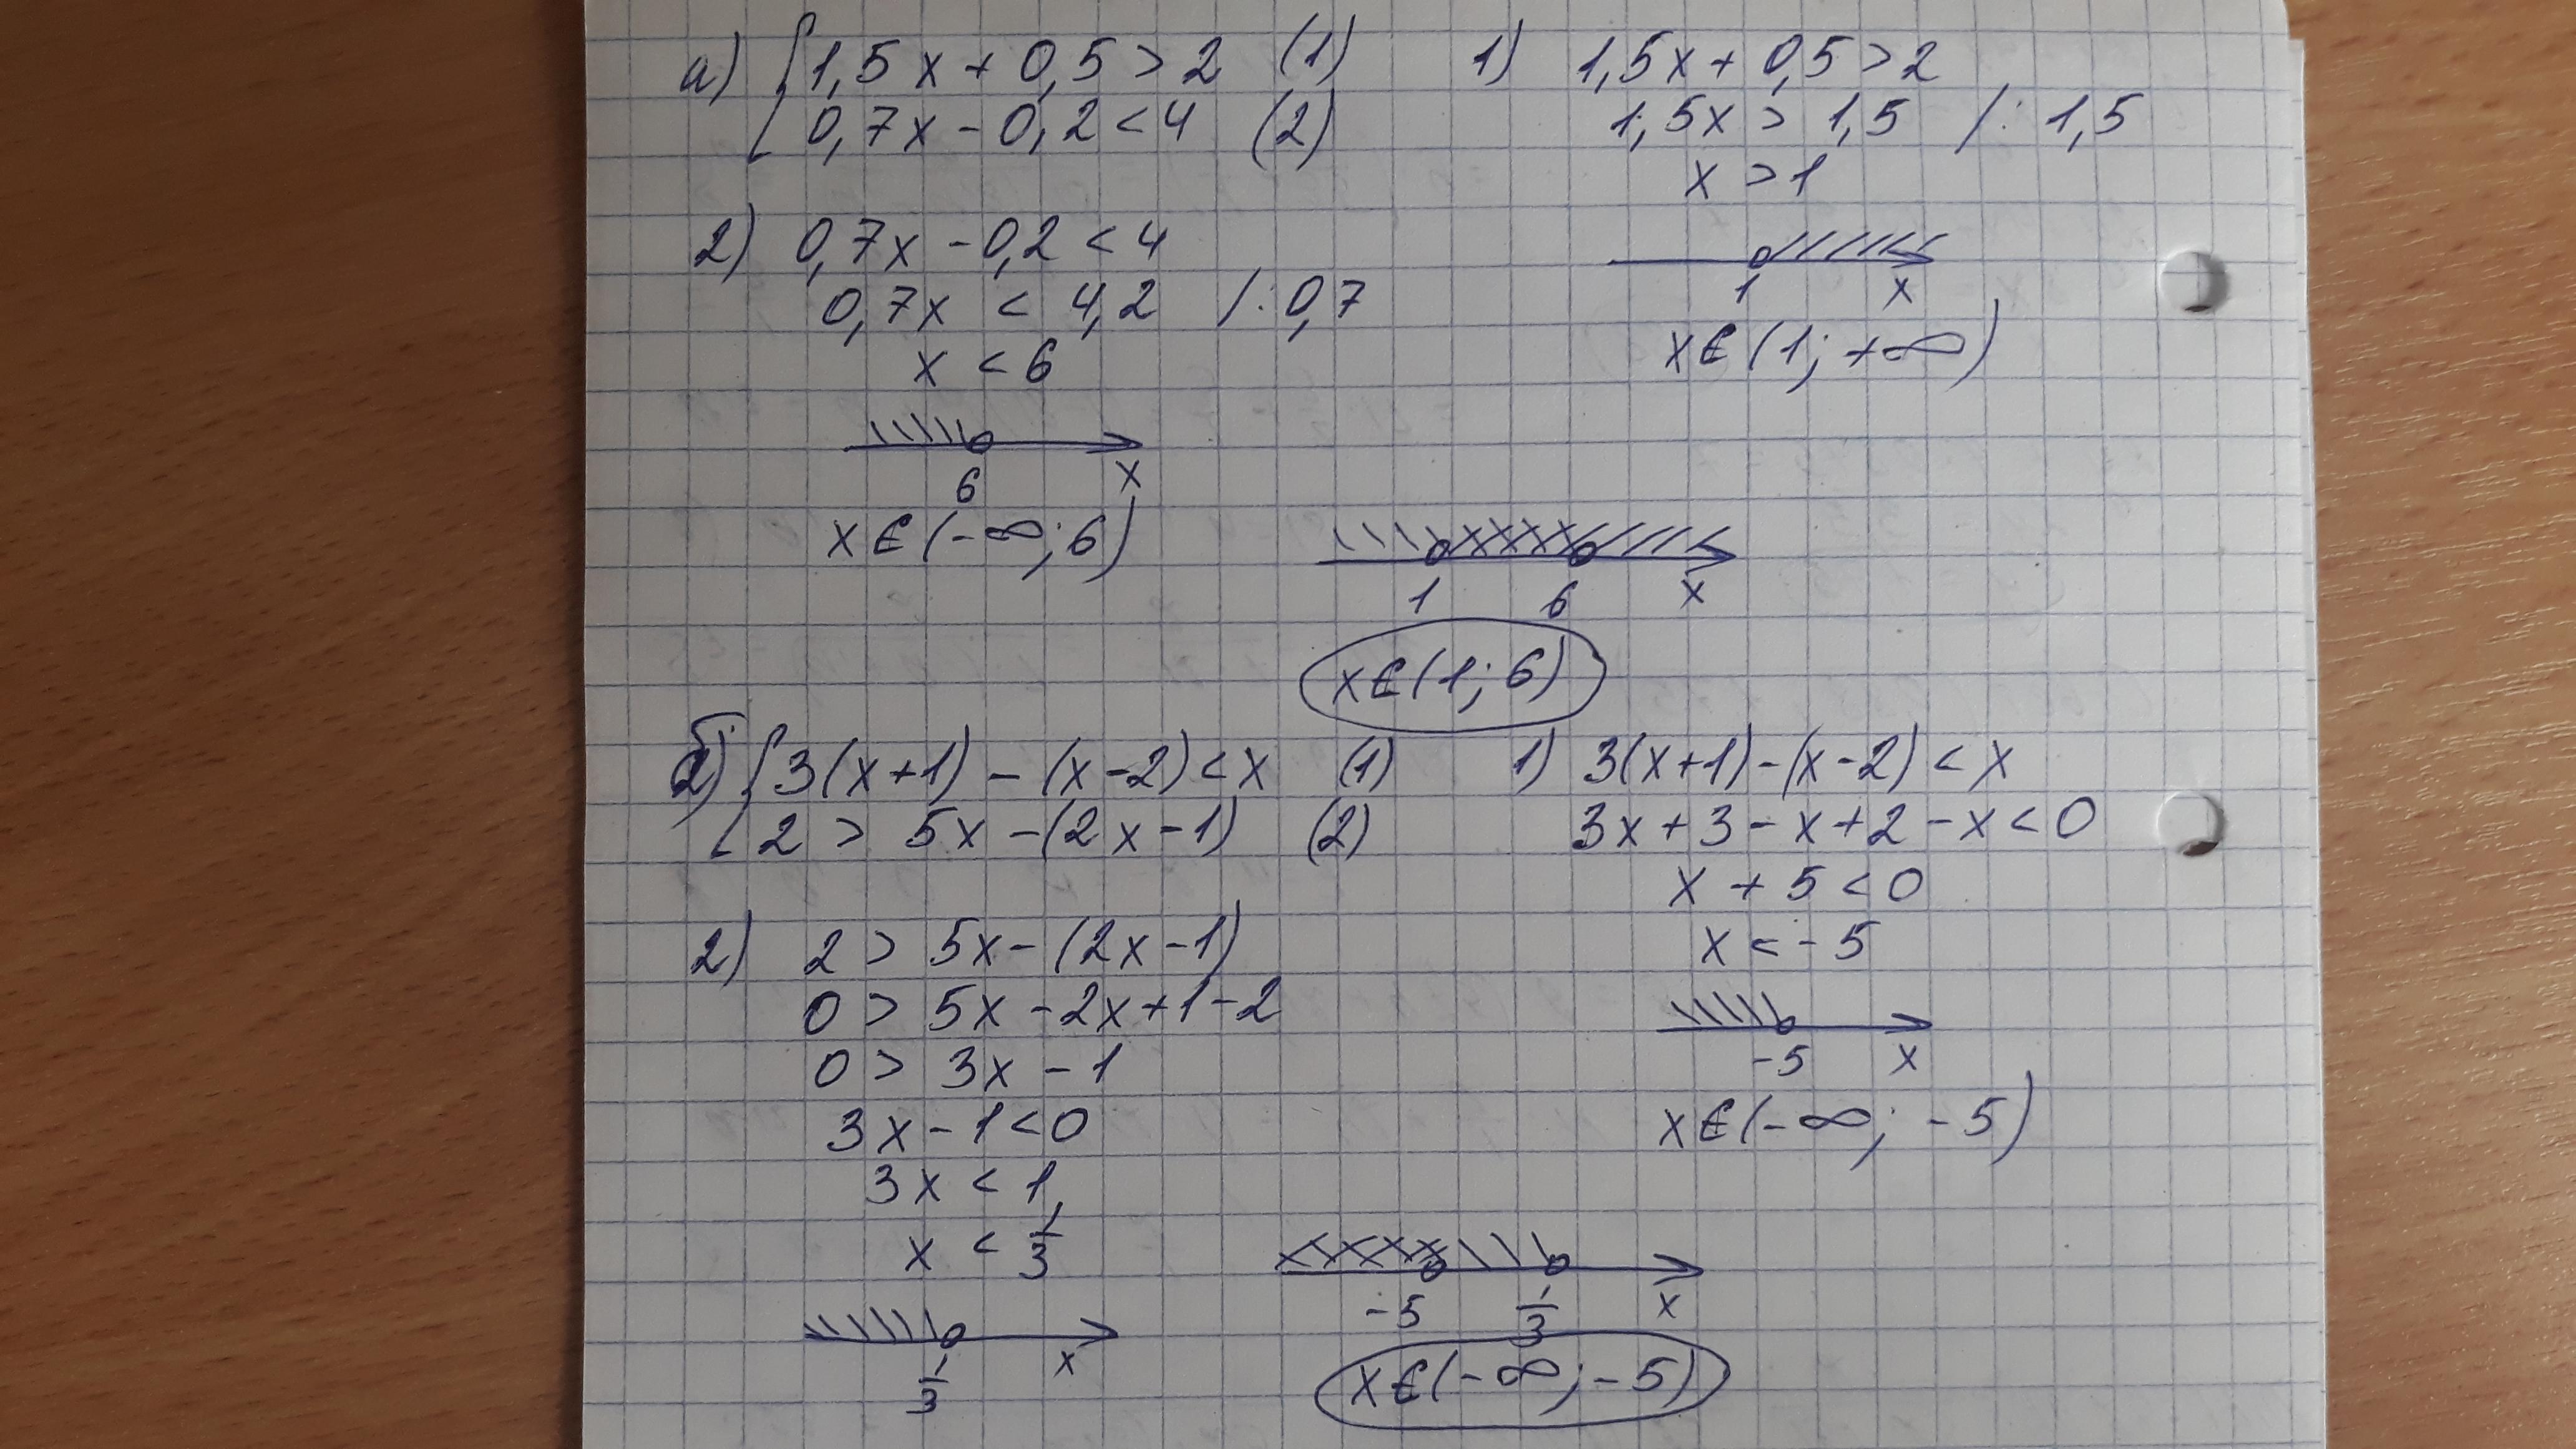 а) { 1,5x + 0,5 > 2 (1)
0,7x - 0,2 < 4 (2)
1) 1,5x + 0,5 > 2
1,5x > 1,5 /: 1,5
x > 1
1 x
x ∈ (1; +∞)
2) 0,7x - 0,2 < 4
0,7x < 4,2 /: 0,7
x < 6
6 x
x ∈ (-∞; 6)
1 6 x
x ∈ (1; 6)
б) { 3(x+1) - (x-2) < x (1)
2 > 5x - (2x-1) (2)
1) 3(x+1) - (x-2) < x
3x + 3 - x + 2 - x < 0
x + 5 < 0
x < -5
-5 x
x ∈ (-∞; -5)
2) 2 > 5x - (2x-1)
0 > 5x - 2x + 1 - 2
0 > 3x - 1
3x - 1 < 0
3x < 1
x < 1/3
1/3 x
-5 1/3 x
x ∈ (-∞; -5)